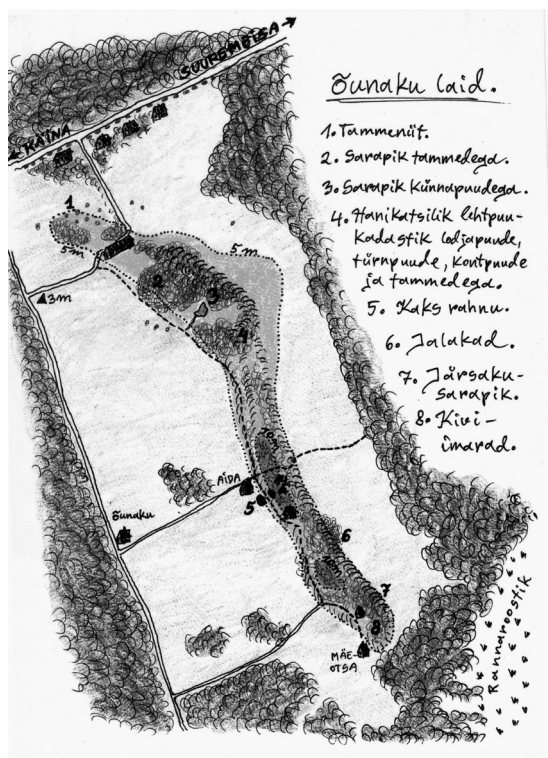 Õunaku laid.
1. Tammeniit.
2. Sarapik tammedega.
3. Sarapik künnapuudega.
4. Hanikatsilik lehtpuu-
kadastik lodjapuude,
türnpuude, kontpuude
ja tammedega.
5. Kaks rahnu.
6. Jalakad.
7. Järsaku-
sarapik.
8. Kivi-
imarad.
SUUREMÕISA
KÄINA
1
5m
3m
2
3
4
5m
10m
AIDA
5
Õunaku
6
10m
7
8
MÄE-
OTSA
Rannaroostik